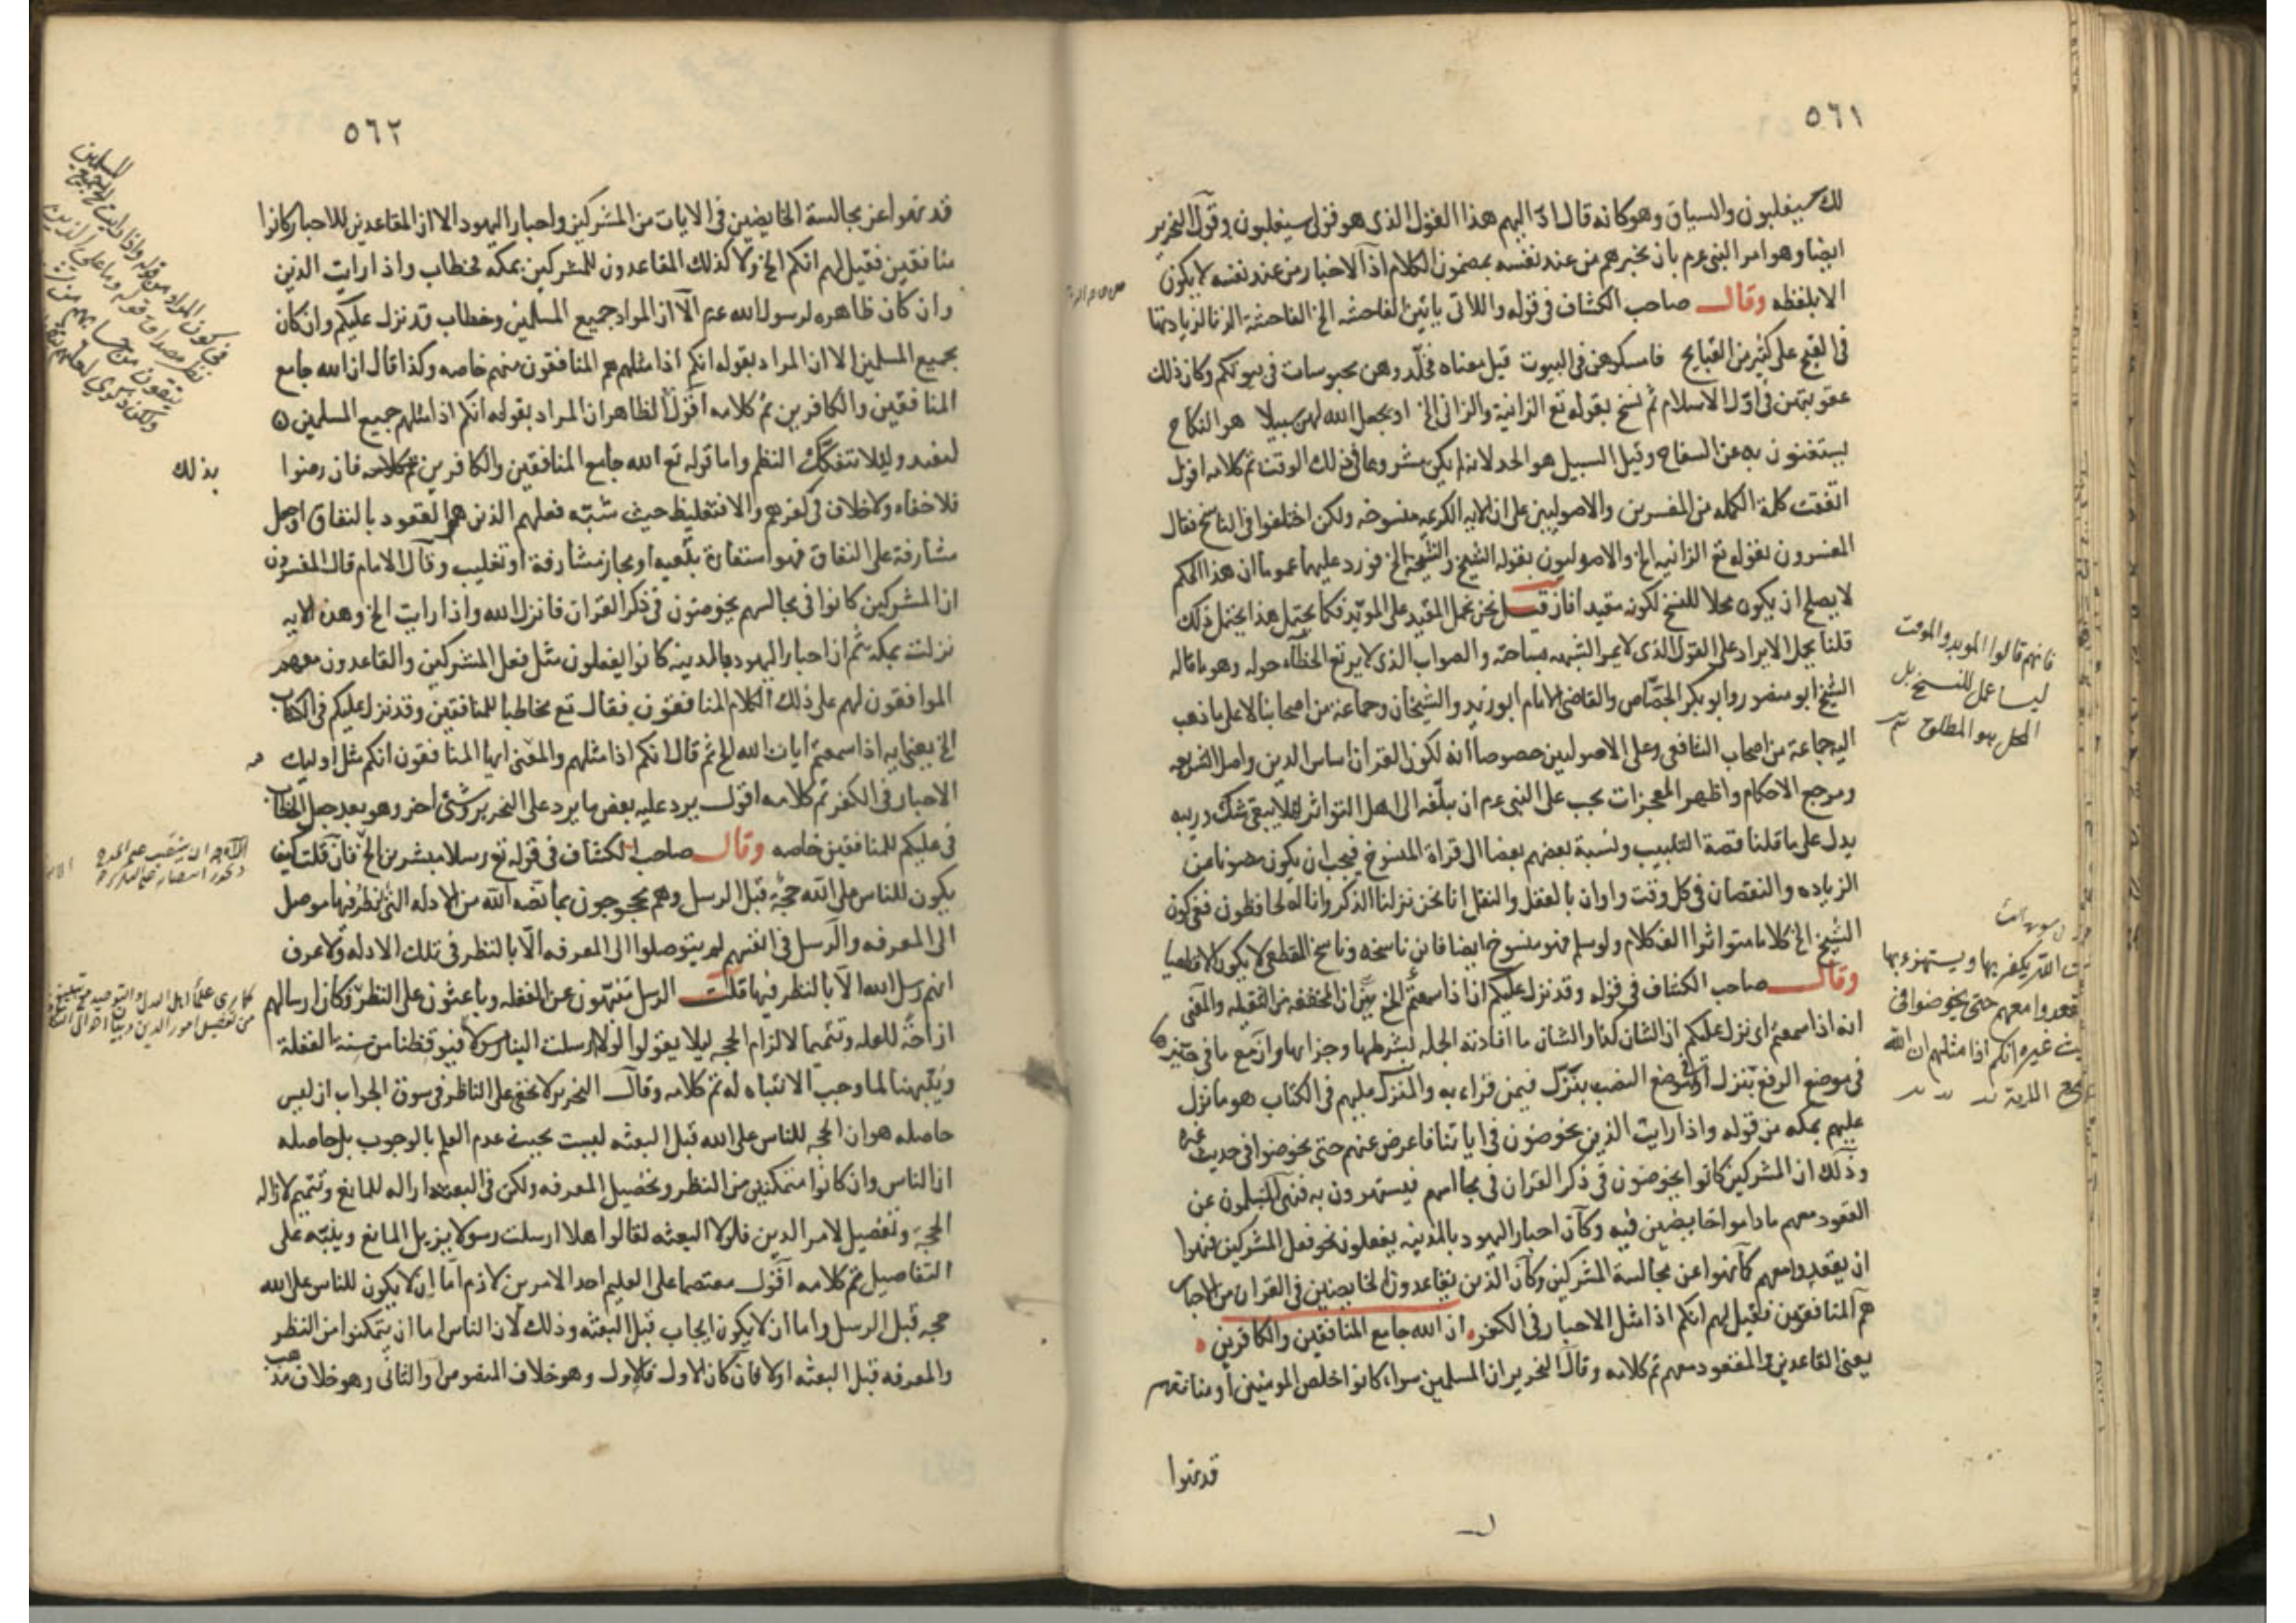 ٥٦١
لك سيغلبون والسياق وهو كانه قال ادّ اليهم هذا القول الذى هو قولى سيغلبون وقول النحرير
ايضا وهو امر النبى عم بان يخبرهم من عند نفسه بمضمون الكلام اذ الاخبار من عند نفسه لا يكون
الا بلفظه وقال صاحب الكشاف فى قوله واللاتى ياتين الفاحشه الخ الفاحشة الزنا لزيادتها
فى القبح على كثير من القبايح فامسكوهن فى البيوت قيل معناه فخلّدوهن محبوسات فى بيوتكم وكان ذلك
عقوبتهن فى اول الاسلام ثم نسخ بقوله تع الزانية والزانى الخ او يجعل الله لهن سبيلا هو النكاح
يستغنون به عن السفاح وقيل السبيل هو الحد لانه لم يكن مشروعا فى ذلك الوقت تم كلامه اقول
اتفقت كلمة الكمله من المفسرين والاصوليين على ان الايه الكريمه منسوخه ولكن اختلفوا فى الناسخ فقال
المفسرون بقوله تع الزانيه الخ والاصوليون بقوله الشيخ والشيخة الخ فورد عليهما عموما ان هذا الحكم
لا يصلح ان يكون محلا للنسخ لكونه مقيدا فان قيل نحن نحمل المقيد على المويد فكما يحتمل هذا يحتمل ذلك
قلنا يحل الايراد على القول الذى لا يمر الشبهه بساحته والصواب الذى لا يرتع الخطاء حوله وهو ما قاله
الشيخ ابو منصور وابو بكر الجصّاص والقاضى الامام ابو زيد والشيخان وجماعة من اصحابنا لا على ما ذهب
اليه جماعة من اصحاب الشافعى وعلى الاصوليين خصوصا انه لكون القران اساس الدين واصل الشريعه
ومرجع الاحكام واظهر المعجزات يجب على النبى عم ان يبلّغه الى اهل التواتر لئلا يبقى شك وريبه
يدل على ما قلنا قصة التلبيب ونسبة بعضهم بعضا الى قراة المنسوخ فيجب ان يكون مصونا عن
الزياده والنقصان فى كل وقت واوان بالعقل والنقل انا نحن نزلنا الذكر وانا له لحافظون ففى كون
الشيخ الخ كلاما متواترا الف كلام ولو سلم فهو منسوخ ايضا فاين ناسخه وناسخ القطعى لا يكون الا قطعيا
وقال صاحب الكشاف فى قوله وقد نزل عليكم ان اذا سمعتم الخ ان المخففه من الثقيله والمعنى
انه اذا سمعتم اى نزل عليكم ان الشان كذا والشان ما افادته الجمله بشرطها وجزايها وان مع ما فى حيّزها
فى موضع الرفع بنزل او فى موضع النصب بنزّل فيمن قراء به والمنزل عليهم فى الكتاب هو ما نزل
عليهم بمكه من قوله واذا رايت الذين يخوضون فى اياتنا فاعرض عنهم حتى يخوضوا فى حديث غيره
وذلك ان المشركين كانوا يخوضون فى ذكر القران فى مجالسهم فيستهزون به فنهى المسلمون عن
القعود معهم ما داموا خايضين فيه وكان احبار اليهود بالمدينه يفعلون نحو فعل المشركين فنهوا
ان يقعدوا معهم كما نهوا عن مجالسة المشركين وكان الذين يقاعدون الخايضين فى القران من الاحبار
هم المنافقين فقيل لهم انكم اذا مثل الاحبار فى الكفر ان الله جامع المنافقين والكافرين
يعنى القاعدين والمقعود معهم تم كلامه وقال النحرير ان المسلمين سواء كانوا اخلص المومنين او منافقيهم
قد نهوا
فانهم قالوا الموبد والموقت
ليسا محل للنسخ بل
المحل هو المطلق
ت الله يكفر بها ويستهزء بها
قعدوا معهم حتى يخوضوا فى
يث غيره انكم اذا مثلهم ان الله
٥٦٢
قد نهوا عن مجالسة الخايضين فى الايات من المشركين واحبار اليهود الا ان المقاعدين للاحبار كانوا
منافقين فقيل لهم انكم الخ ولا كذلك المقاعدون للمشركين بمكه فخطاب واذا رايت الذين
وان كان ظاهره لرسول الله عم الا ان المراد جميع المسلمين وخطاب وقد نزل عليكم وان كان
بجميع المسلمين الا ان المراد بقوله انكم اذا مثلهم هم المنافقون منهم خاصه وكذا قال ان الله جامع
المنافقين والكافرين تم كلامه اقول الظاهر ان المراد بقوله انكم اذا مثلهم جميع المسلمين
ليفيد ولئلا يتفكّك النظم واما قوله تع الله جامع المنافقين والكافرين فان رضوا
بذلك
فلا خفاء ولا خلاف فى كفرهم والا فتغليظ حيث شبّه فعلهم الذى هو القعود بالنفاق او جعل
مشارفة على النفاق فهو استعارة تبعيه او مجاز مشارفة او تغليب وقال الامام قال المفسرون
ان المشركين كانوا فى مجالسهم يخوضون فى ذكر القران فانزل الله واذا رايت الخ وهذه الايه
نزلت بمكه ثم ان احبار اليهود بالمدينه كانوا يفعلون مثل فعل المشركين والقاعدون معهم
الموافقون لهم على ذلك الكلام المنافقون فقال تع مخاطبا للمنافقين وقد نزل عليكم فى الكتاب
الخ يعنى به اذا سمعتم ايات الله الخ ثم قال انكم اذا مثلهم والمعنى ايها المنافقون انكم مثل اوليك
الاحبار فى الكفر تم كلامه اقول يرد عليه بعض ما يرد على النحرير وشئ اخر وهو بعد جعل الخطاب
فى عليكم للمنافقين خاصه وقال صاحب الكشاف فى قوله تع رسلا مبشرين الخ فان قلت كيف
يكون للناس على الله حجّة قبل الرسل وهم محجوجون بما نصبه الله من الادله التى النظر فيها موصل
الى المعرفه والرسل فى انفسهم لم يتوصلوا الى المعرفه الا بالنظر فى تلك الادله ولا عرف
انهم رسل الله الا بالنظر فيها قلت الرسل منبّهون عن الغفله وباعثون على النظر وكان ارسالهم
ازاحة للعله وتتميما لالزام الحجه ليلا يقولوا لولا ارسلت الينا رسولا فيوقظنا من سنة الغفلة
وينبّهنا لما وجب الانتباه له تم كلامه وقال النحرير لا يخفى على الناظر فى سوق الجواب ان ليس
حاصله هو ان الحجه للناس على الله قبل البعثه ليست بحيث عدم العلم بالوجوب بل حاصله
ان الناس وان كانوا متمكنين من النظر وتحصيل المعرفه ولكن فى البعثه ازاله للمانع وتتميم لازاله
الحجة وتفصيل لامر الدين فلولا البعثه لقالوا هلا ارسلت رسولا يزيل المانع وينبّه على
التفاصيل تم كلامه اقول معتصما على العليم احد الامرين لازم امّا ان لا يكون للناس على الله
حجه قبل الرسل واما ان لا يكون ايجاب قبل البعثه وذلك لان الناس اما ان يتمكنوا من النظر
والمعرفه قبل البعثه اولا فان كان الاول فالاول وهو خلاف المنصوص والثانى وهو خلاف مذهب